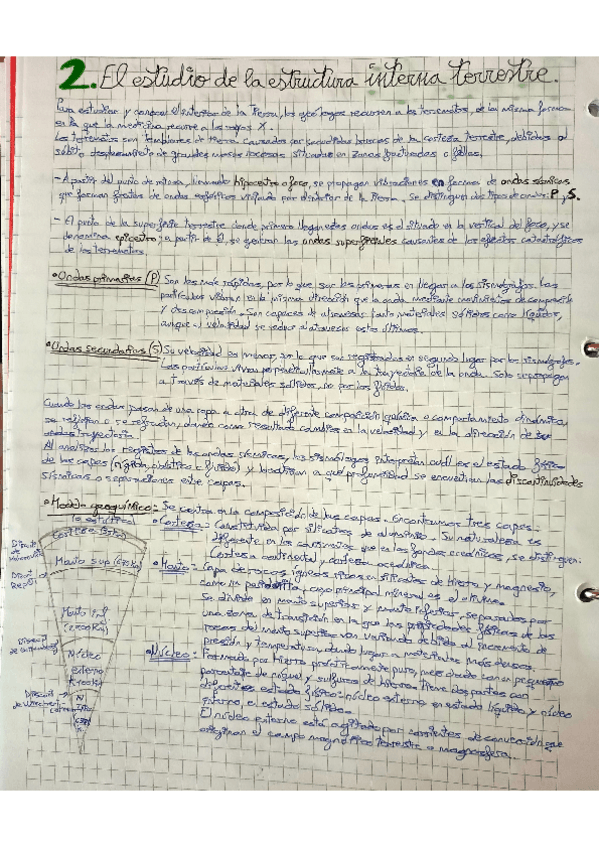 2. El estudio de la estructura interna terrestre.
Para estudiar y conocer el interior de la Tierra, los geólogos recurren a los terremotos, de la misma forma
en la que la medicina recurre a los rayos X.
Los terremotos son temblores de tierra causados por sacudidas bruscas de la corteza terrestre, debidas al
súbito desplazamiento de grandes masas rocosas situadas en zonas fracturadas o fallas.
- A partir del punto de inicio, llamado hipocentro o foco, se propagan vibraciones en formas de ondas sísmicas,
que forman frentes de ondas por el interior de la Tierra. Se distinguen dos tipos de ondas: P y S.
- El punto de la superficie terrestre donde primero llegan estas ondas es el situado en la vertical del foco, y se
denomina epicentro; a partir de él, se generan las ondas superficiales causantes de los efectos catastróficos
de los terremotos.
• Ondas primarias (P) Son las más rápidas, por lo que son las primeras en llegar a los sismógrafos. Las
partículas vibran en la misma dirección que la onda mediante movimientos de compresión
y descompresión. Son capaces de atravesar tanto materiales sólidos como líquidos,
aunque su velocidad se reduce al atravesar estos últimos.
• Ondas Secundarias (S) Su velocidad es menor, por lo que son registradas en segundo lugar por los sismógrafos.
Las partículas vibran perpendicularmente a la trayectoria de la onda. Solo se propagan
a través de materiales sólidos, no por los fluidos.
Cuando las ondas pasan de una capa a otra, de diferente composición química o comportamiento dinámico,
se reflejan o se refractan, dando como resultado cambios en la velocidad y en la dirección de su
trayectoria.
Al analizar los registros de las ondas sísmicas, los sismólogos interpretan cuál es el estado físico
de las capas (rígida, plástica o fluida) y localizan a qué profundidad se encuentran las discontinuidades
sísmicas o separaciones entre capas.
• Modelo geoquímico: Se centra en la composición de las capas. Encontramos tres capas:
• Corteza: Constituida por silicatos de aluminio. Su naturaleza es
diferente en los continentes que en los fondos oceánicos, se distinguen:
Corteza continental y corteza oceánica.
• Manto: Capa de rocas ígneas ricas en silicatos de hierro y magnesio,
como la peridotita, cuyo principal mineral es el olivino.
Se divide en manto superior y manto inferior, separados por
una zona de transición en la que las propiedades físicas de las
rocas del manto superior van variando debido al incremento de
presión y temperatura, dando lugar a materiales más densos.
• Núcleo: Formado por hierro prácticamente puro, mezclado con un pequeño
porcentaje de níquel y sulfuros de hierro. Tiene dos partes con
diferentes estados físicos: núcleo externo en estado líquido y núcleo
interno, el estado sólido.
El núcleo externo está agitado por corrientes de convección que
originan el campo magnético terrestre o magnetosfera...
Manto sup
Manto inf
Núcleo
Externo